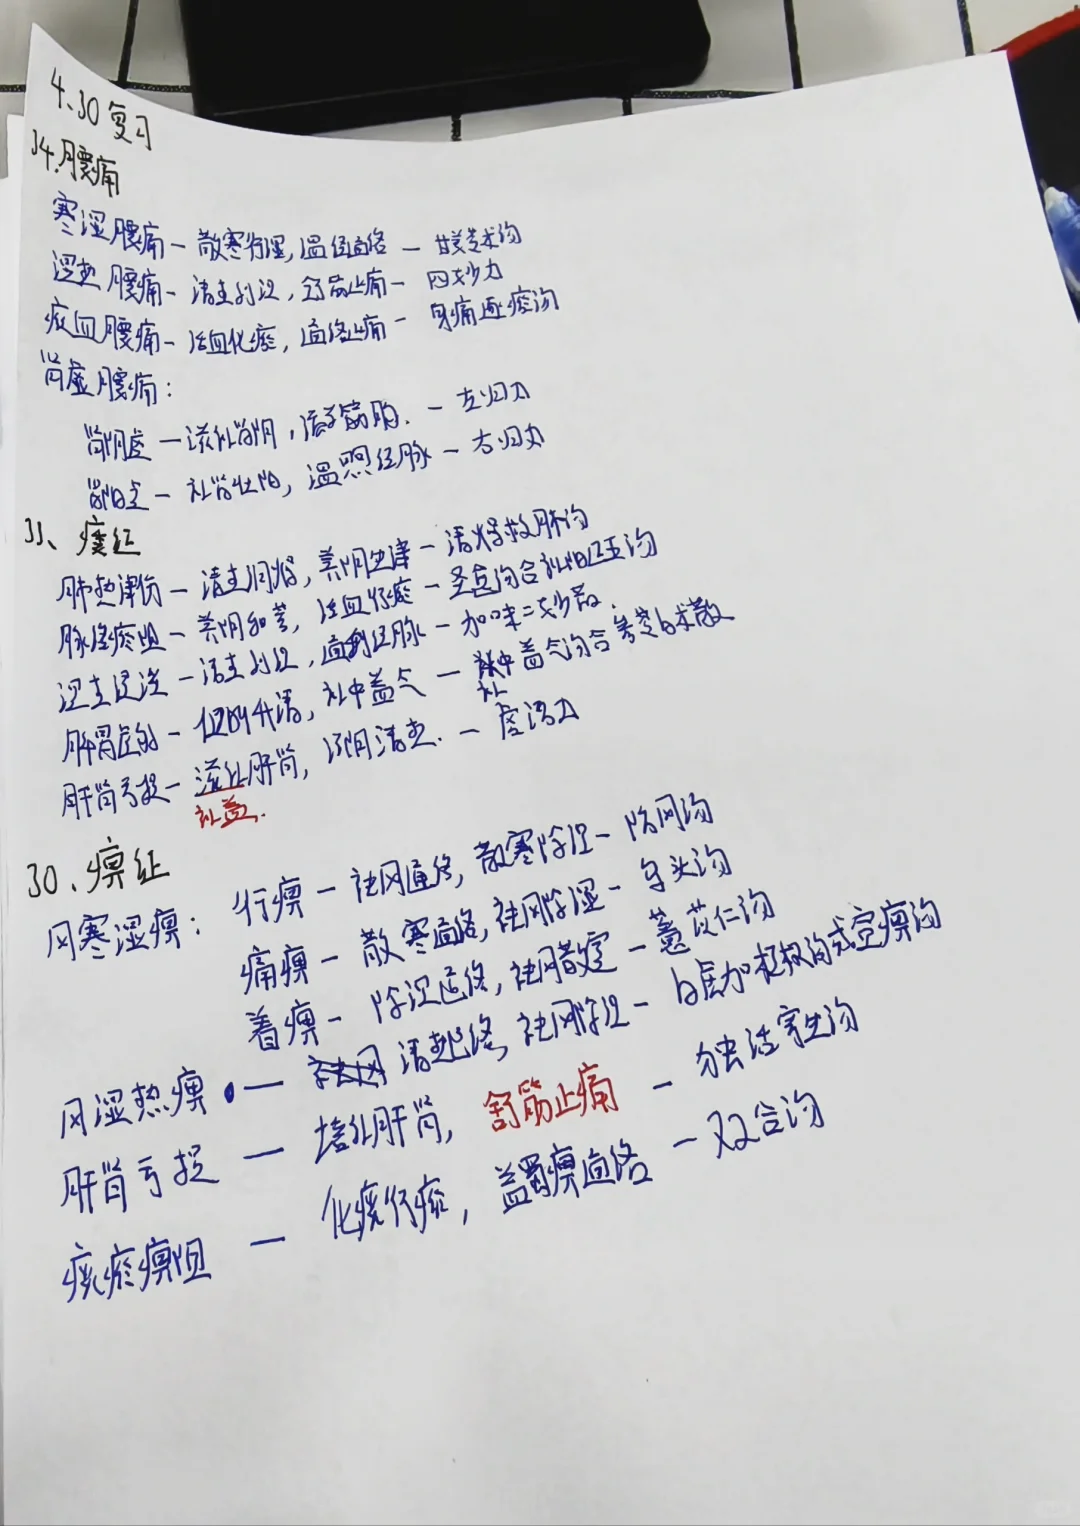 4.30 复习
34.腰痛
寒湿腰痛 — 散寒行湿,温经通络 — 甘姜苓术汤
湿热腰痛 — 清热利湿,舒筋止痛 — 四妙丸
瘀血腰痛 — 活血化瘀,通络止痛 — 身痛逐瘀汤
肾虚腰痛:
肾阴虚 — 滋补肾阴,濡养筋脉. — 左归丸
肾阳虚 — 补肾壮阳,温煦经脉 — 右归丸
33、痿证
肺热津伤 — 清热润燥,养阴生津 — 清燥救肺汤
脉络瘀阻 — 养阴和营,活血行瘀 — 圣愈汤合补阳还五汤
湿热浸淫 — 清热利湿,通利经脉 — 加味二妙散.
脾胃虚弱 — 健脾升清,补中益气 — 补中益气汤合参苓白术散
肝肾亏损 — 滋补肝肾,滋阴清热. — 虎潜丸
补益.
30、痹证
风寒湿痹: 行痹 — 祛风通络,散寒除湿 — 防风汤
痛痹 — 散寒通络,祛风除湿 — 乌头汤
着痹 — 除湿通络,祛风散寒 — 薏苡仁汤
风湿热痹 — 清热通络,祛风除湿 — 白虎加桂枝汤或宣痹汤
肝肾亏损 — 培补肝肾,舒筋止痛 — 独活寄生汤
痰瘀痹阻 — 化痰行瘀,蠲痹通络 — 双合汤